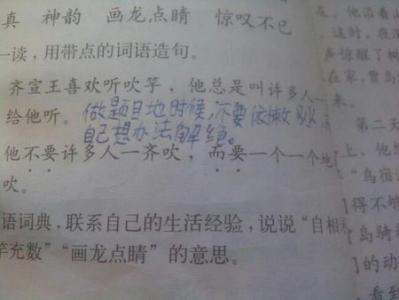 真 神韵 画龙点睛 惊叹不已
一读，用带点的词语造句。
齐宣王喜欢听吹竽，他总是叫许多人一
给他听。
做题目地时候，不要依赖别人
自己想办法解决。
他不要许多人一齐吹，而要一个一个地
吹。
语词典，联系自己的生活经验，说说“自相
竽充数”“画龙点睛”的意思。
在，他沿着
这时，夜深
声惊醒了树
在家，贾岛
来。
第二天
上，他想
“鸟宿
得不够
岛骑
的动
看到